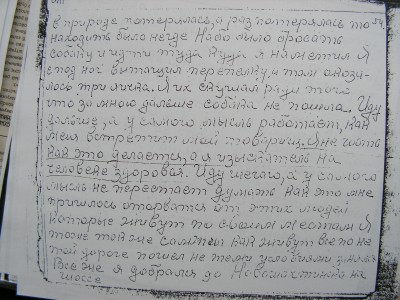 в природе потерялась, а раз потерялась то
находить было негде Надо было бросать
собаку и идти туда куда я наметил Я
с под ног вытащил перепелку, и там оказа-
лось три яичка. Я их скушал ради того
что за мною дальше собака не пошла. Иду
дальше, а у самого мысль работает, как
меня встретит мой товарищ. Я не
как это делается, а я изыскатель на
человека здоровая. Иду шагаю, а у самого
мысль не перестает думать как это мне
пришлось оторватся от этих людей
которые живут по своим местам Я
тоже так же как живут все по не
той дороге пошел не теми условиями занялся
Все же я добрался до на
шоссе